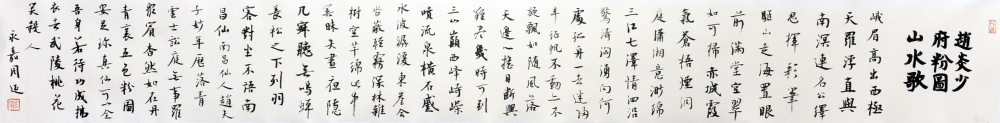 趙炎少
府粉圖
山水歌
峨眉高出西極
天羅浮直與
南溟連名公繹
思揮彩筆
驅山走海置眼
前滿堂空翠
如可掃赤城霞
氣蒼梧煙洞
庭瀟湘意渺綿
三江七澤情洄沿
驚濤洶湧向何
處孤舟一去迷歸
年征帆不動亦不
旋飄如隨風落
天邊心搖目斷興
難盡幾時可到
三山巔西峰崢嶸
噴流泉橫石蹙
水波潺湲東崖合
沓蔽輕霧深林雜
樹空芊綿此中
冥昧失晝夜隱
几寂聽無鳴蟬
長松之下列羽
客對坐不語南
昌仙南昌仙人趙夫
子妙年歷落青
雲士訟庭無事羅
眾賓杳然如在丹
青裏五色粉圖
安足珍真仙可以全
吾身若待功成拂
衣去武陵桃花
笑殺人
永嘉周延